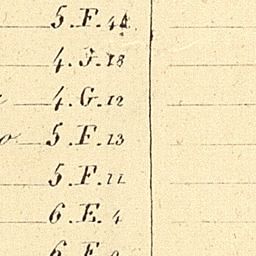 5.F.
4.J.18
4.G.12
o 5.F.13
5.F.11
6.E.4
6.E.